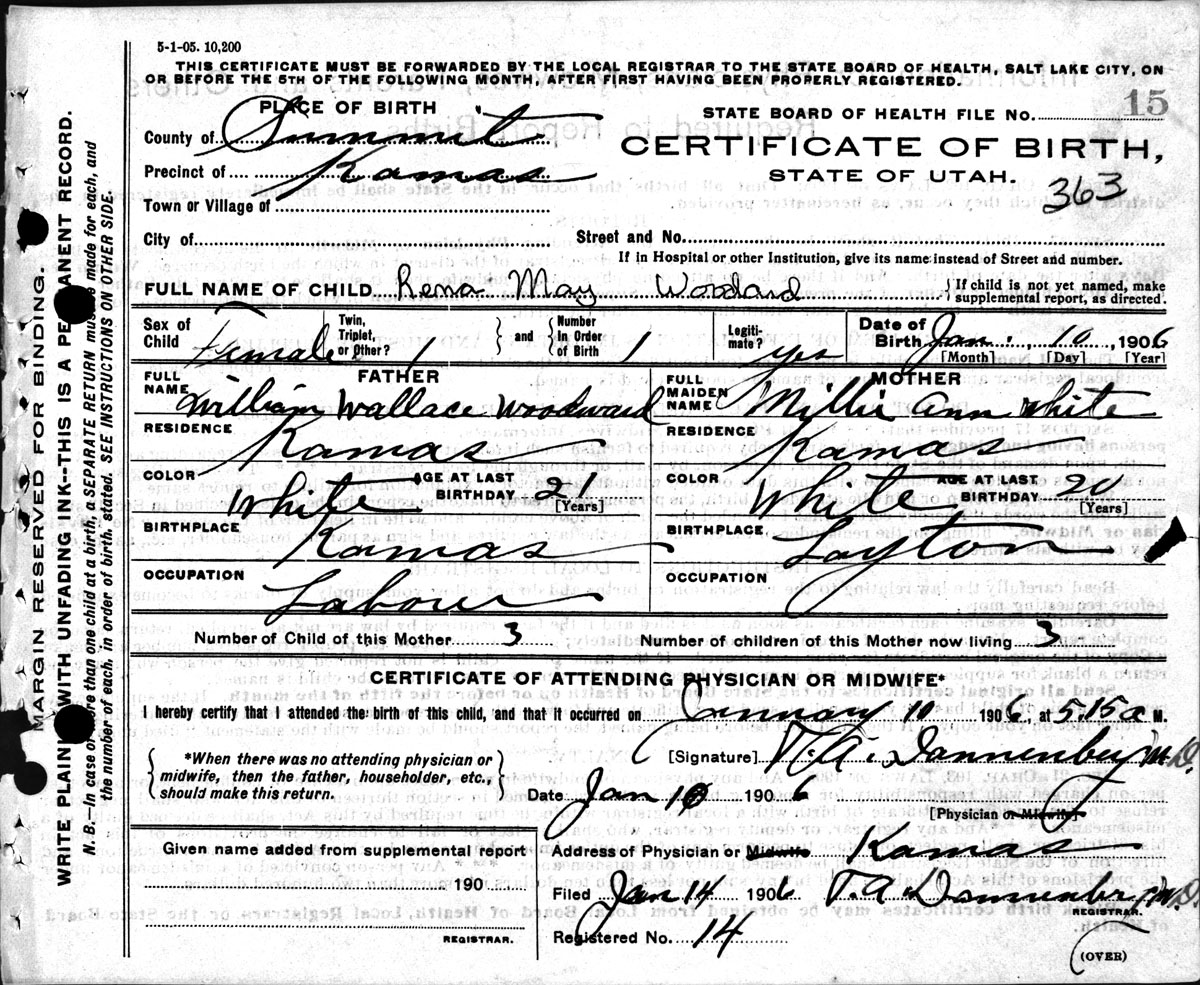 5-1-05. 10,200
THIS CERTIFICATE MUST BE FORWARDED BY THE LOCAL REGISTRAR TO THE STATE BOARD OF HEALTH, SALT LAKE CITY, ON
OR BEFORE THE 5TH OF THE FOLLOWING MONTH, AFTER FIRST HAVING BEEN PROPERLY REGISTERED.
PLACE OF BIRTH
STATE BOARD OF HEALTH FILE No. 15
County of Summit
CERTIFICATE OF BIRTH,
Precinct of Kamas
STATE OF UTAH.
363
Town or Village of
City of
Street and No.
If in Hospital or other Institution, give its name instead of Street and number.
FULL NAME OF CHILD Rena May Woodard {If child is not yet named, make supplemental report, as directed.
Sex of Child Female Twin, Triplet, or Other? 1 } and { Number In Order of Birth 1 Legiti-mate? yes Date of Birth Jan. 10 1906
[Month] [Day] [Year]
FATHER
MOTHER
FULL NAME William Wallace Woodward
FULL MAIDEN NAME Millie Ann White
RESIDENCE Kamas
RESIDENCE Kamas
COLOR White AGE AT LAST BIRTHDAY 21 [Years]
COLOR White AGE AT LAST BIRTHDAY 20 [Years]
BIRTHPLACE Kamas
BIRTHPLACE Layton
OCCUPATION Labour
OCCUPATION
Number of Child of this Mother 3
Number of children of this Mother now living 3
CERTIFICATE OF ATTENDING PHYSICIAN OR MIDWIFE*
I hereby certify that I attended the birth of this child, and that it occurred on January 10 1906, at 5.15 a M.
{*When there was no attending physician or midwife, then the father, householder, etc., should make this return.}
[Signature] T.A. Dannenberg M.D.
Date Jan 10 1906
[Physician or Midwife]
Given name added from supplemental report
Address of Physician or Midwife Kamas
190
Filed Jan 14 1906 T.A. Dannenberg M.D.
REGISTRAR.
REGISTRAR.
Registered No. 14
(OVER)
MARGIN RESERVED FOR BINDING.
WRITE PLAIN WITH UNFADING INK--THIS IS A PE ANENT RECORD.
N. B.—In case of more than one child at a birth, a SEPARATE RETURN must be made for each, and
the number of each, in order of birth, stated. SEE INSTRUCTIONS ON OTHER SIDE.